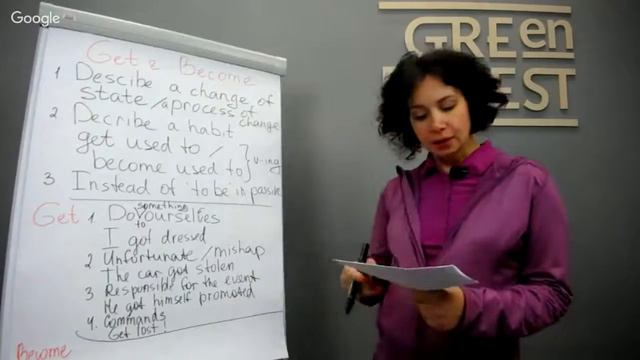 Google
GREen
EST
Get & Become
1 Descibe a change of
state / a process of
change
2 Decribe a habit
get used to /
become used to } V-ing
3 Instead of "to be" in passive
Get 1 Do something
to yourselves
I got dressed
2 Unfortunate / mishap
The car got stolen
3 Responsible for the event
He got himself promoted
4. Commands
Get lost!
Become